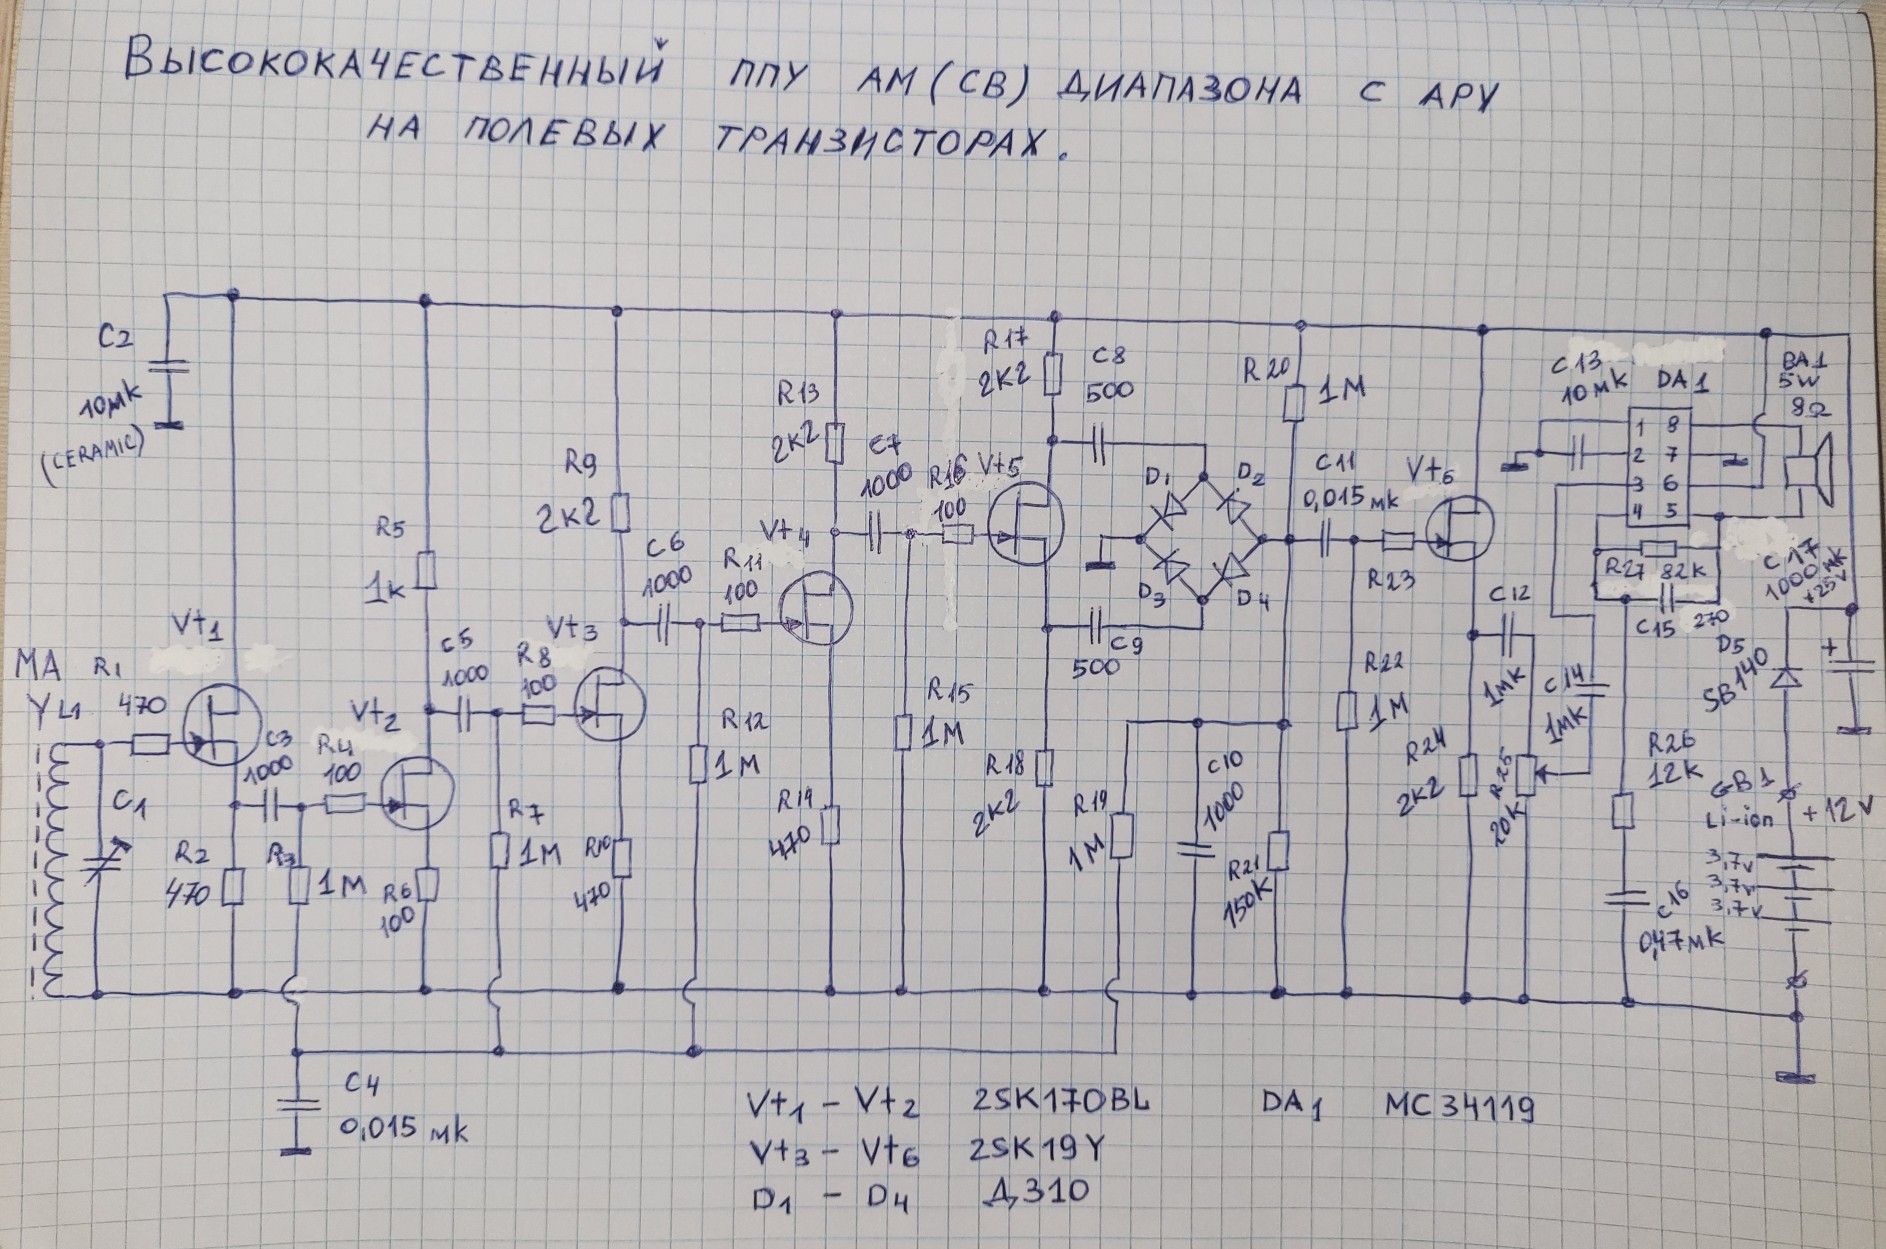 ВЫСОКОКАЧЕСТВЕННЫЙ ППУ АМ (СВ) ДИАПАЗОНА С АРУ
НА ПОЛЕВЫХ ТРАНЗИСТОРАХ.
C2
10мк
(CERAMIC)
MA
Y L1
R1
470
Vt1
C1
R2
470
C3
1000
R3
1M
R4
100
Vt2
R5
1k
R6
100
C5
1000
R7
1M
R8
100
Vt3
R9
2k2
R10
470
C6
1000
R11
100
R12
1M
Vt4
R13
2k2
R14
470
C7
1000
R15
1M
R16
100
Vt5
R17
2k2
R18
2k2
C8
500
C9
500
D1
D2
D3
D4
R19
1M
C10
1000
R20
1M
R21
150k
C11
0,015 мк
R22
1M
R23
Vt6
R24
2k2
C12
1мк
R25
20k
C13
10мк
DA1
1 8
2 7
3 6
4 5
C14
1мк
R27 82k
C15 270
R26
12k
C16
0,47мк
BA1
5W
8Ω
C17
1000мк
+25V
+
D5
SB140
GB1
Li-ion
+12V
3,7v
3,7v
3,7v
C4
0,015 мк
Vt1 - Vt2 2SK170BL DA1 MC34119
Vt3 - Vt6 2SK19Y
D1 - D4 Д310